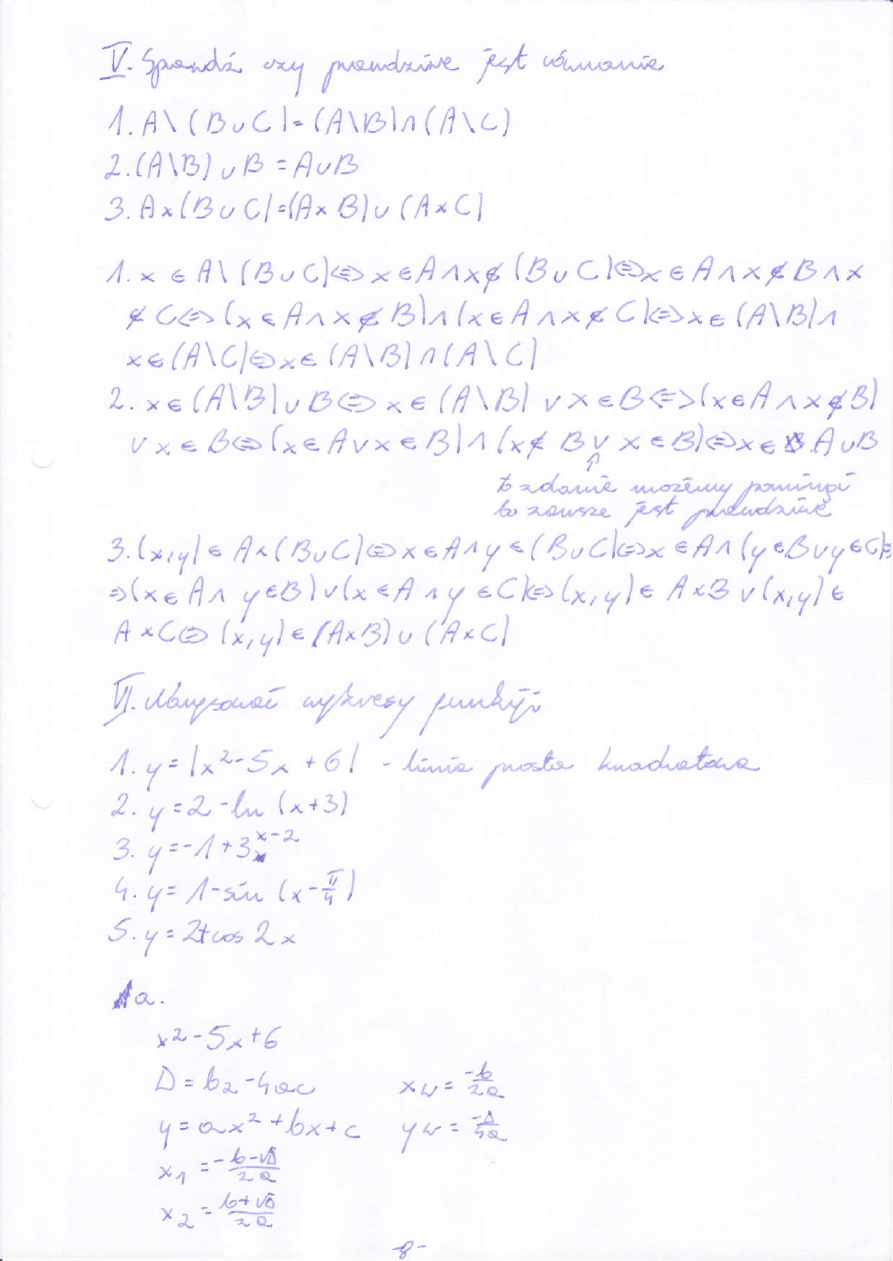 V. Sprawdź czy prawdziwe jest równanie
1. A\(B∪C)=(A\B)∩(A\C)
2. (A\B)∪B=A∪B
3. A×(B∪C)=(A×B)∪(A×C)
1. x∈A\(B∪C)⇔x∈A∧x∉(B∪C)⇔x∈A∧x∉B∧x
∉C⇔(x∈A∧x∉B)∧(x∈A∧x∉C)⇔x∈(A\B)∧
x∈(A\C)⇔x∈(A\B)∩(A\C)
2. x∈(A\B)∪B⇔x∈(A\B)∨x∈B⇔(x∈A∧x∉B)
∨x∈B⇔(x∈A∨x∈B)∧(x∉B∨x∈B)⇔x∈A∪B
to zdanie możemy pominąć
bo zawsze jest prawdziwe
3. (x,y)∈A×(B∪C)⇔x∈A∧y∈(B∪C)⇔x∈A∧(y∈B∨y∈C)⇔
⇒(x∈A∧y∈B)∨(x∈A∧y∈C)⇔(x,y)∈A×B∨(x,y)∈
A×C⇔(x,y)∈(A×B)∪(A×C)
VI. Narysować wykresy funkcji
1. y=|x²-5x+6| - linia prosta kwadratowa
2. y=2-ln(x+3)
3. y=-1+3^{x-2}
4. y=1-sin(x-π/4)
5. y=2+cos2x
1a.
x²-5x+6
D=b2-4ac xw=-b/2a
y=ax²+bx+c yw=-Δ/4a
x₁=-b-√Δ/2a
x₂=-b+√Δ/2a
-8-